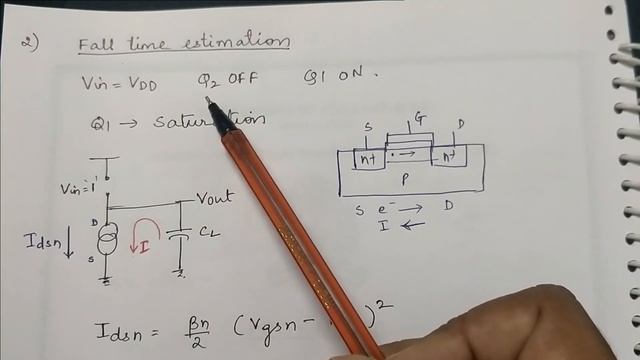 2) Fall time estimation
Vin = VDD Q2 OFF Q1 ON.
Q1 → Saturation
S G D
n+ n+
P
S e⁻ → D
I ←
Vin='1'
Vout
D
Idsn ↓ I CL
S
Idsn = βn/2 (Vgsn - )²